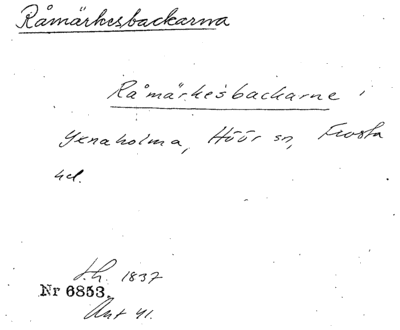 Råmärkesbackarna
Råmärkesbackarne i
Yxnaholma, Höör sn, Frosta
hd.
s.h. 1837
Nr 6853.
Ant 41.